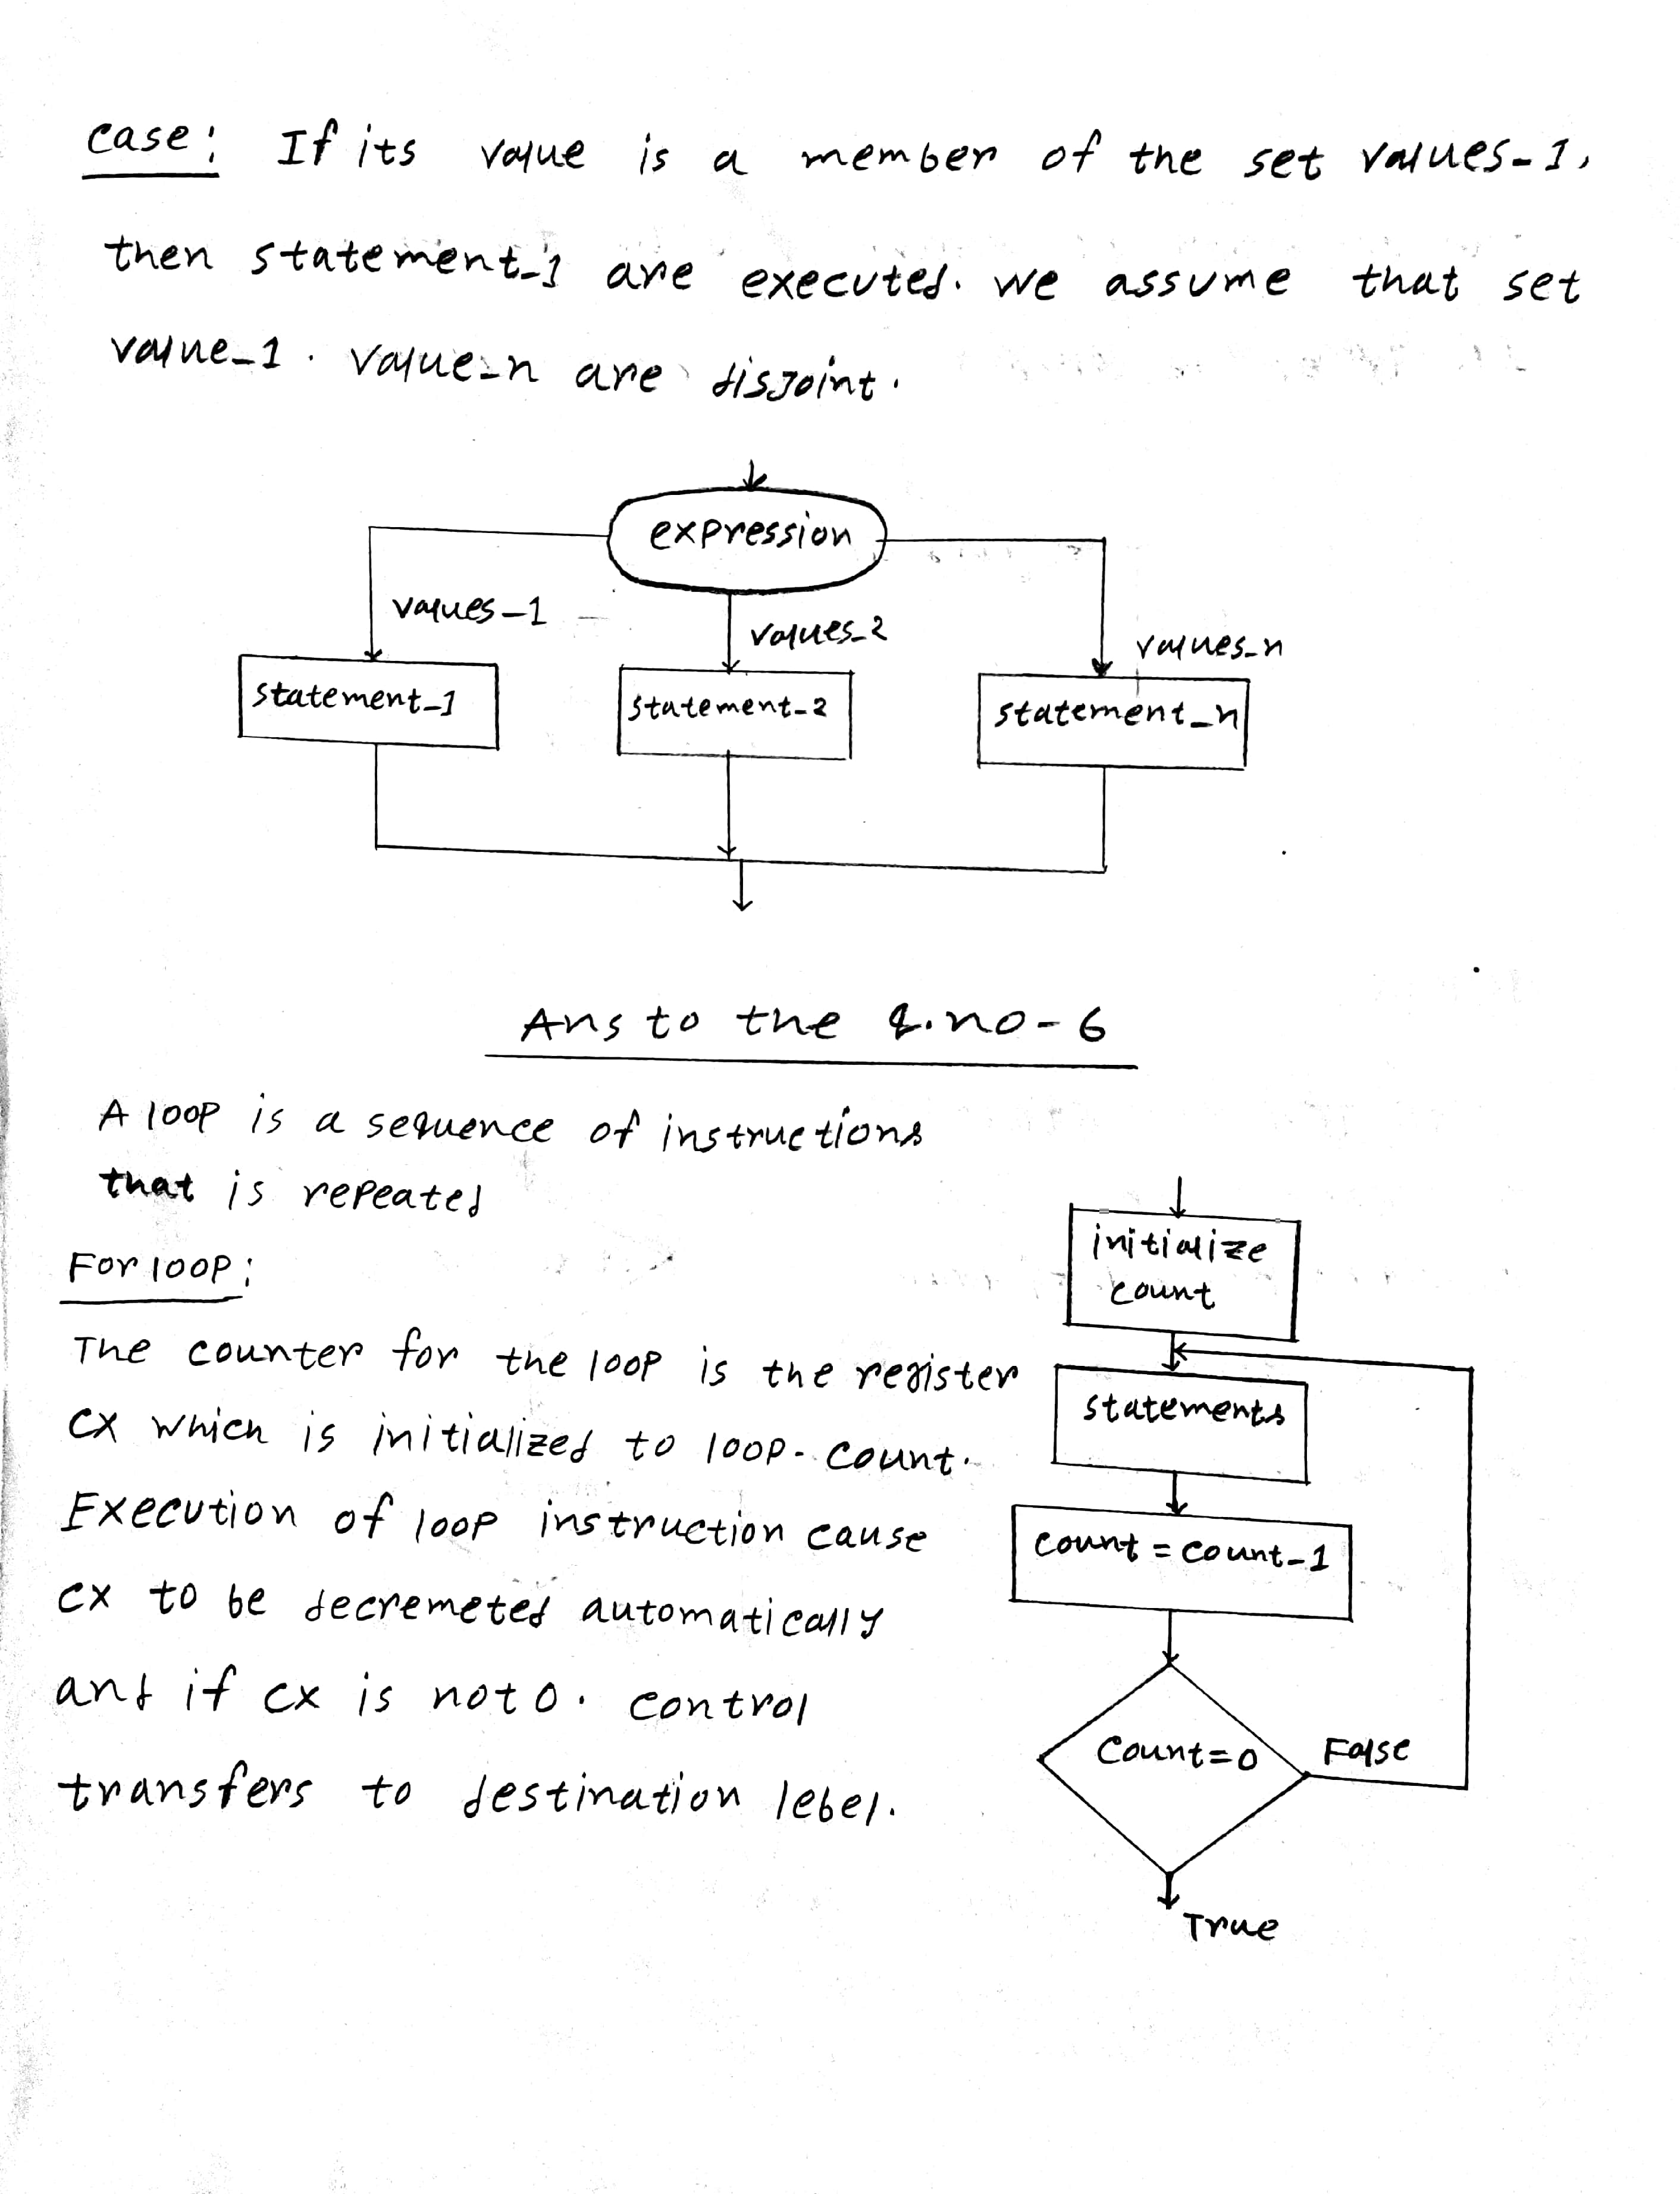 case: If its value is a member of the set values-1,
then statement-1 are executed. we assume that set
value-1. value-n are disjoint.
expression
values-1
values-2
values-n
statement-1
statement-2
statement-n
Ans to the q.no-6
A loop is a sequence of instructions
that is repeated
For loop:
The counter for the loop is the register
cx which is initialized to loop-count.
Execution of loop instruction cause
cx to be decremeted automatically
and if cx is not 0. control
transfers to destination lebel.
initialize
count
statements
count = count-1
Count=0
False
True